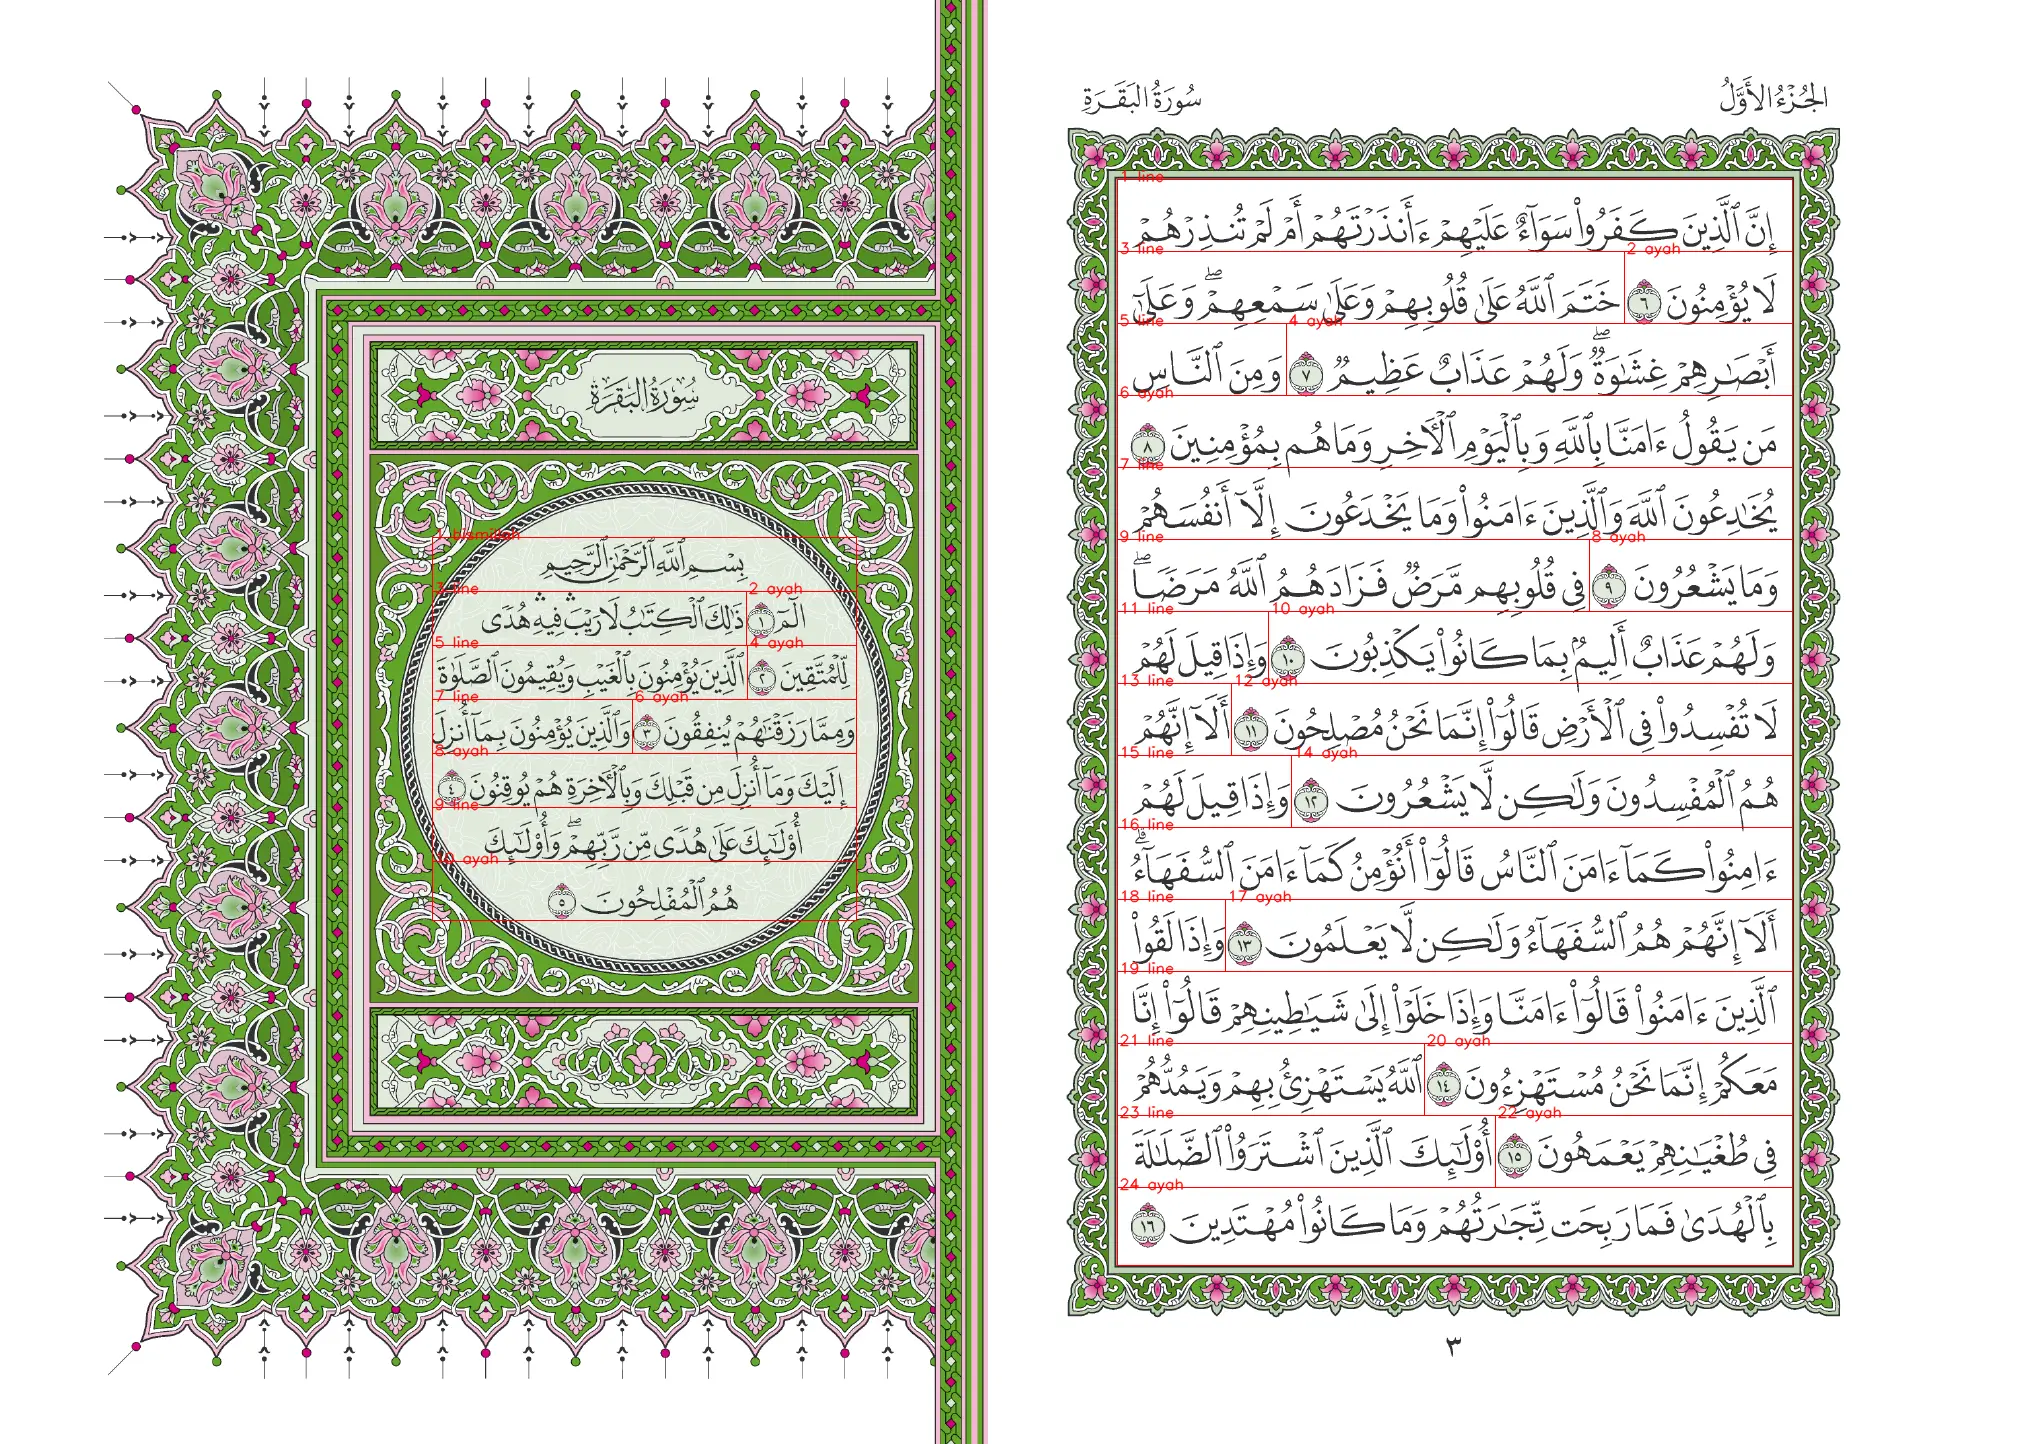 سُورَةُ البَقَرَةِ
1 bismillah
بِسْمِ ٱللَّهِ ٱلرَّحْمَٰنِ ٱلرَّحِيمِ
3 line 2 ayah
الٓمٓ ١ ذَٰلِكَ ٱلْكِتَٰبُ لَا رَيْبَ ۛ فِيهِ ۛ هُدًى
5 line 4 ayah
لِّلْمُتَّقِينَ ٢ ٱلَّذِينَ يُؤْمِنُونَ بِٱلْغَيْبِ وَيُقِيمُونَ ٱلصَّلَوٰةَ
7 line 6 ayah
وَمِمَّا رَزَقْنَٰهُمْ يُنفِقُونَ ٣ وَٱلَّذِينَ يُؤْمِنُونَ بِمَآ أُنزِلَ
8 ayah
إِلَيْكَ وَمَآ أُنزِلَ مِن قَبْلِكَ وَبِٱلْأَخِرَةِ هُمْ يُوقِنُونَ ٤
9 line
أُوْلَٰٓئِكَ عَلَىٰ هُدًى مِّن رَّبِّهِمْ ۖ وَأُوْلَٰٓئِكَ
10 ayah
هُمُ ٱلْمُفْلِحُونَ ٥
الجُزْءُ الأَوَّلُ
سُورَةُ البَقَرَةِ
1 line
إِنَّ ٱلَّذِينَ كَفَرُوا۟ سَوَآءٌ عَلَيْهِمْ ءَأَنذَرْتَهُمْ أَمْ لَمْ تُنذِرْهُمْ
3 line 2 ayah
لَا يُؤْمِنُونَ ٦ خَتَمَ ٱللَّهُ عَلَىٰ قُلُوبِهِمْ وَعَلَىٰ سَمْعِهِمْ ۖ وَعَلَىٰٓ
5 line 4 ayah
أَبْصَٰرِهِمْ غِشَٰوَةٌ ۖ وَلَهُمْ عَذَابٌ عَظِيمٌ ٧ وَمِنَ ٱلنَّاسِ
6 ayah
مَن يَقُولُ ءَامَنَّا بِٱللَّهِ وَبِٱلْيَوْمِ ٱلْأَخِرِ وَمَا هُم بِمُؤْمِنِينَ ٨
7 line
يُخَٰدِعُونَ ٱللَّهَ وَٱلَّذِينَ ءَامَنُوا۟ وَمَا يَخْدَعُونَ إِلَّآ أَنفُسَهُمْ
9 line 8 ayah
وَمَا يَشْعُرُونَ ٩ فِى قُلُوبِهِم مَّرَضٌ فَزَادَهُمُ ٱللَّهُ مَرَضًا ۖ
11 line 10 ayah
وَلَهُمْ عَذَابٌ أَلِيمٌۢ بِمَا كَانُوا۟ يَكْذِبُونَ ١٠ وَإِذَا قِيلَ لَهُمْ
13 line 12 ayah
لَا تُفْسِدُوا۟ فِى ٱلْأَرْضِ قَالُوٓا۟ إِنَّمَا نَحْنُ مُصْلِحُونَ ١١ أَلَآ إِنَّهُمْ
15 line 14 ayah
هُمُ ٱلْمُفْسِدُونَ وَلَٰكِن لَّا يَشْعُرُونَ ١٢ وَإِذَا قِيلَ لَهُمْ
16 line
ءَامِنُوا۟ كَمَآ ءَامَنَ ٱلنَّاسُ قَالُوٓا۟ أَنُؤْمِنُ كَمَآ ءَامَنَ ٱلسُّفَهَآءُ ۗ
18 line 17 ayah
أَلَآ إِنَّهُمْ هُمُ ٱلسُّفَهَآءُ وَلَٰكِن لَّا يَعْلَمُونَ ١٣ وَإِذَا لَقُوا۟
19 line
ٱلَّذِينَ ءَامَنُوا۟ قَالُوٓا۟ ءَامَنَّا وَإِذَا خَلَوْا۟ إِلَىٰ شَيَٰطِينِهِمْ قَالُوٓا۟ إِنَّا
21 line 20 ayah
مَعَكُمْ إِنَّمَا نَحْنُ مُسْتَهْزِءُونَ ١٤ ٱللَّهُ يَسْتَهْزِئُ بِهِمْ وَيَمُدُّهُمْ
23 line 22 ayah
فِى طُغْيَٰنِهِمْ يَعْمَهُونَ ١٥ أُوْلَٰٓئِكَ ٱلَّذِينَ ٱشْتَرَوُا۟ ٱلضَّلَٰلَةَ
24 ayah
بِٱلْهُدَىٰ فَمَا رَبِحَت تِّجَٰرَتُهُمْ وَمَا كَانُوا۟ مُهْتَدِينَ ١٦
٣